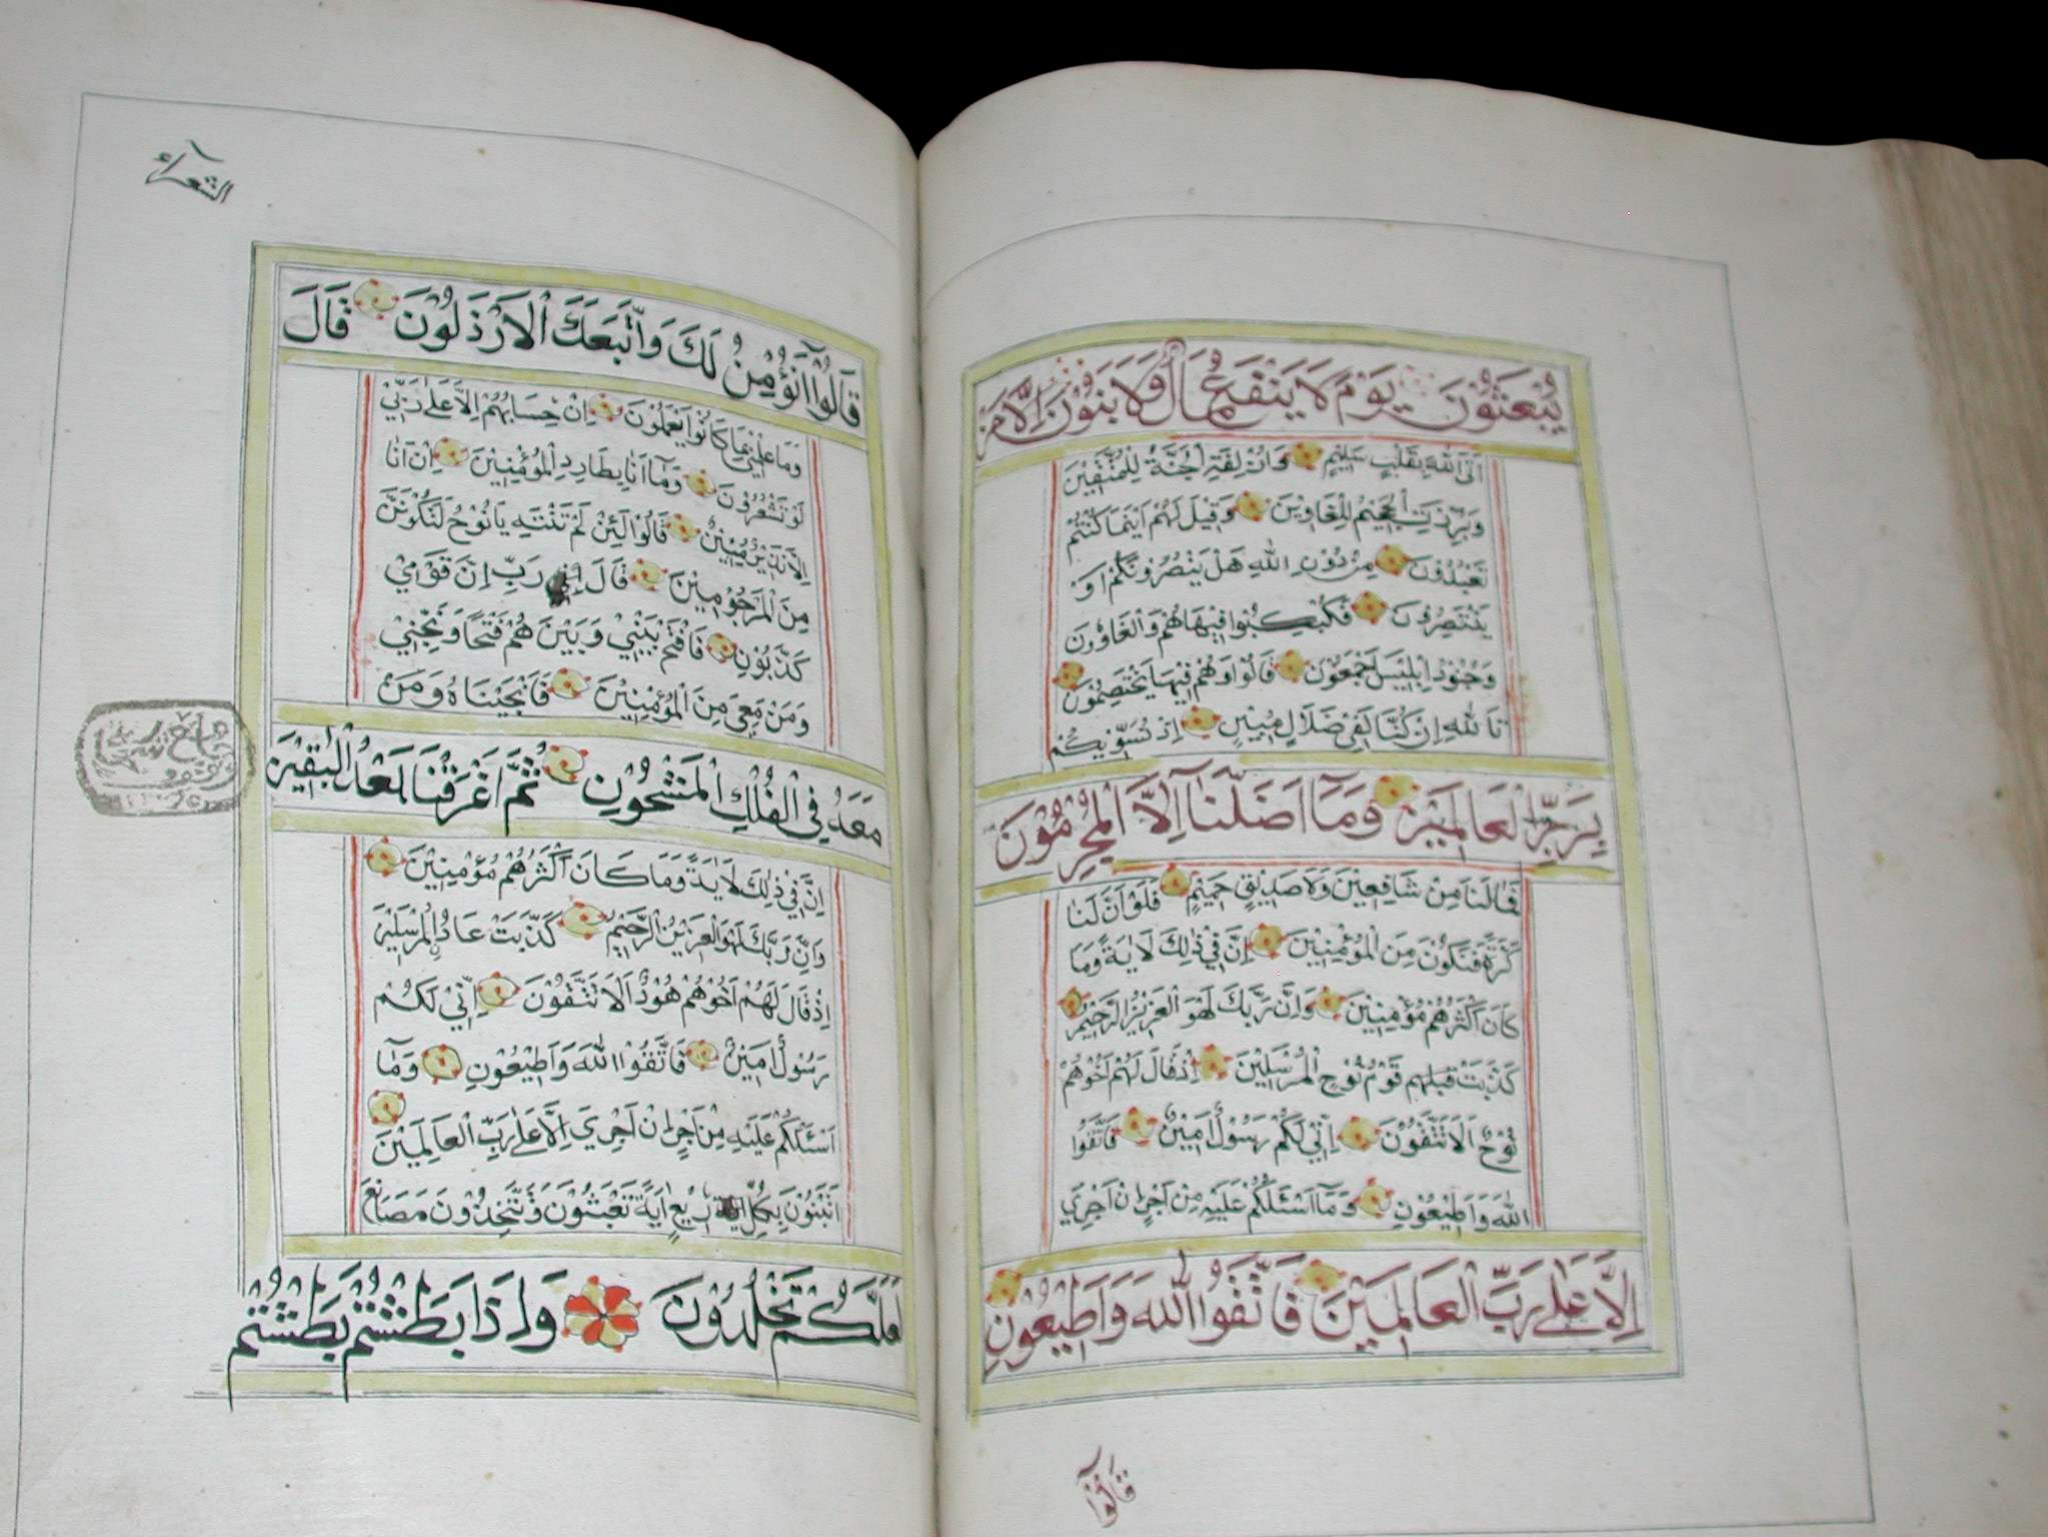 يُبْعَثُوْنَ يَوْمَ لَا يَنْفَعُ مَالٌ وَلَا بَنُوْنَ اِلَّا مَنْ
اَتَى اللهَ بِقَلْبٍ سَلِيْمٍ وَاُزْلِفَتِ الْجَنَّةُ لِلْمُتَّقِيْنَ
وَبُرِّزَتِ الْجَحِيْمُ لِلْغَاوِيْنَ وَقِيْلَ لَهُمْ اَيْنَمَا كُنْتُمْ
تَعْبُدُوْنَ مِنْ دُوْنِ اللهِ هَلْ يَنْصُرُوْنَكُمْ اَوْ
يَنْتَصِرُوْنَ فَكُبْكِبُوْا فِيْهَا هُمْ وَالْغَاوٗنَ
وَجُنُوْدُ اِبْلِيْسَ اَجْمَعُوْنَ قَالُوْا وَهُمْ فِيْهَا يَخْتَصِمُوْنَ
تَاللهِ اِنْ كُنَّا لَفِيْ ضَلَالٍ مُبِيْنٍ اِذْ نُسَوِّيْكُمْ
بِرَبِّ الْعَالَمِيْنَ وَمَآ اَضَلَّنَآ اِلَّا الْمُجْرِمُوْنَ
فَمَا لَنَا مِنْ شَافِعِيْنَ وَلَا صَدِيْقٍ حَمِيْمٍ فَلَوْ اَنَّ لَنَا
كَرَّةً فَنَكُوْنَ مِنَ الْمُؤْمِنِيْنَ اِنَّ فِيْ ذٰلِكَ لَاٰيَةً وَمَا
كَانَ اَكْثَرُهُمْ مُؤْمِنِيْنَ وَاِنَّ رَبَّكَ لَهُوَ الْعَزِيْزُ الرَّحِيْمُ
كَذَّبَتْ قَبْلَهُمْ قَوْمُ نُوْحِ الْمُرْسَلِيْنَ اِذْ قَالَ لَهُمْ اَخُوْهُمْ
نُوْحٌ اَلَا تَتَّقُوْنَ اِنِّيْ لَكُمْ رَسُوْلٌ اَمِيْنٌ فَاتَّقُوا
اللهَ وَاَطِيْعُوْنِ وَمَآ اَسْئَلُكُمْ عَلَيْهِ مِنْ اَجْرٍ اِنْ اَجْرِيَ
اِلَّا عَلٰى رَبِّ الْعَالَمِيْنَ فَاتَّقُوا اللهَ وَاَطِيْعُوْنِ
قَالُوْآ
الشعرآء
قَالُوْآ اَنُؤْمِنُ لَكَ وَاتَّبَعَكَ الْاَرْذَلُوْنَ قَالَ
وَمَا عِلْمِيْ بِمَا كَانُوْا يَعْمَلُوْنَ اِنْ حِسَابُهُمْ اِلَّا عَلٰى رَبِّيْ
لَوْ تَشْعُرُوْنَ وَمَآ اَنَا بِطَارِدِ الْمُؤْمِنِيْنَ اِنْ اَنَا
اِلَّا نَذِيْرٌ مُبِيْنٌ قَالُوْا لَئِنْ لَمْ تَنْتَهِ يَا نُوْحُ لَتَكُوْنَنَّ
مِنَ الْمَرْجُوْمِيْنَ قَالَ رَبِّ اِنَّ قَوْمِيْ
كَذَّبُوْنِ فَافْتَحْ بَيْنِيْ وَبَيْنَهُمْ فَتْحًا وَنَجِّنِيْ
وَمَنْ مَعِيَ مِنَ الْمُؤْمِنِيْنَ فَاَنْجَيْنَاهُ وَمَنْ
مَعَهُ فِي الْفُلْكِ الْمَشْحُوْنِ ثُمَّ اَغْرَقْنَا بَعْدُ الْبٰقِيْنَ
اِنَّ فِيْ ذٰلِكَ لَاٰيَةً وَمَا كَانَ اَكْثَرُهُمْ مُؤْمِنِيْنَ
وَاِنَّ رَبَّكَ لَهُوَ الْعَزِيْزُ الرَّحِيْمُ كَذَّبَتْ عَادُ الْمُرْسَلِيْنَ
اِذْ قَالَ لَهُمْ اَخُوْهُمْ هُوْدٌ اَلَا تَتَّقُوْنَ اِنِّيْ لَكُمْ
رَسُوْلٌ اَمِيْنٌ فَاتَّقُوا اللهَ وَاَطِيْعُوْنِ وَمَآ
اَسْئَلُكُمْ عَلَيْهِ مِنْ اَجْرٍ اِنْ اَجْرِيَ اِلَّا عَلٰى رَبِّ الْعَالَمِيْنَ
اَتَبْنُوْنَ بِكُلِّ رِيْعٍ اٰيَةً تَعْبَثُوْنَ وَتَتَّخِذُوْنَ مَصَانِعَ
لَعَلَّكُمْ تَخْلُدُوْنَ وَاِذَا بَطَشْتُمْ بَطَشْتُمْ